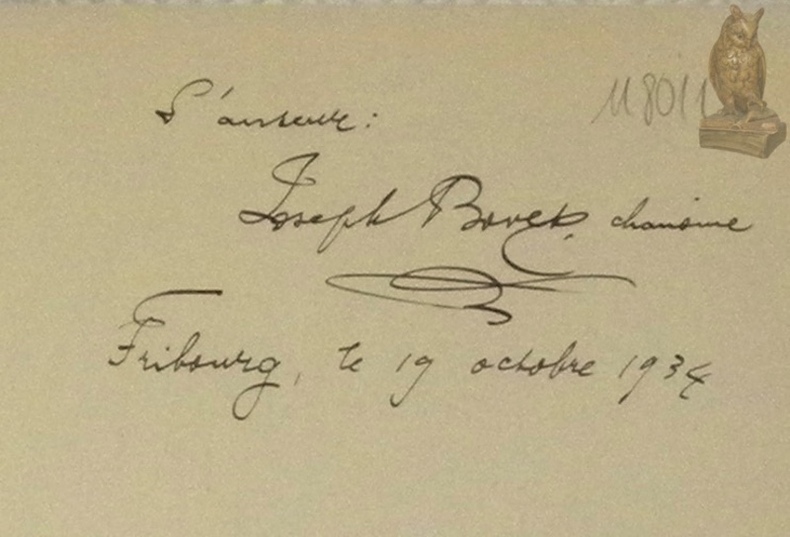 L'auteur:
118011
Joseph Bovet, chanoine
Fribourg, le 19 octobre 1934